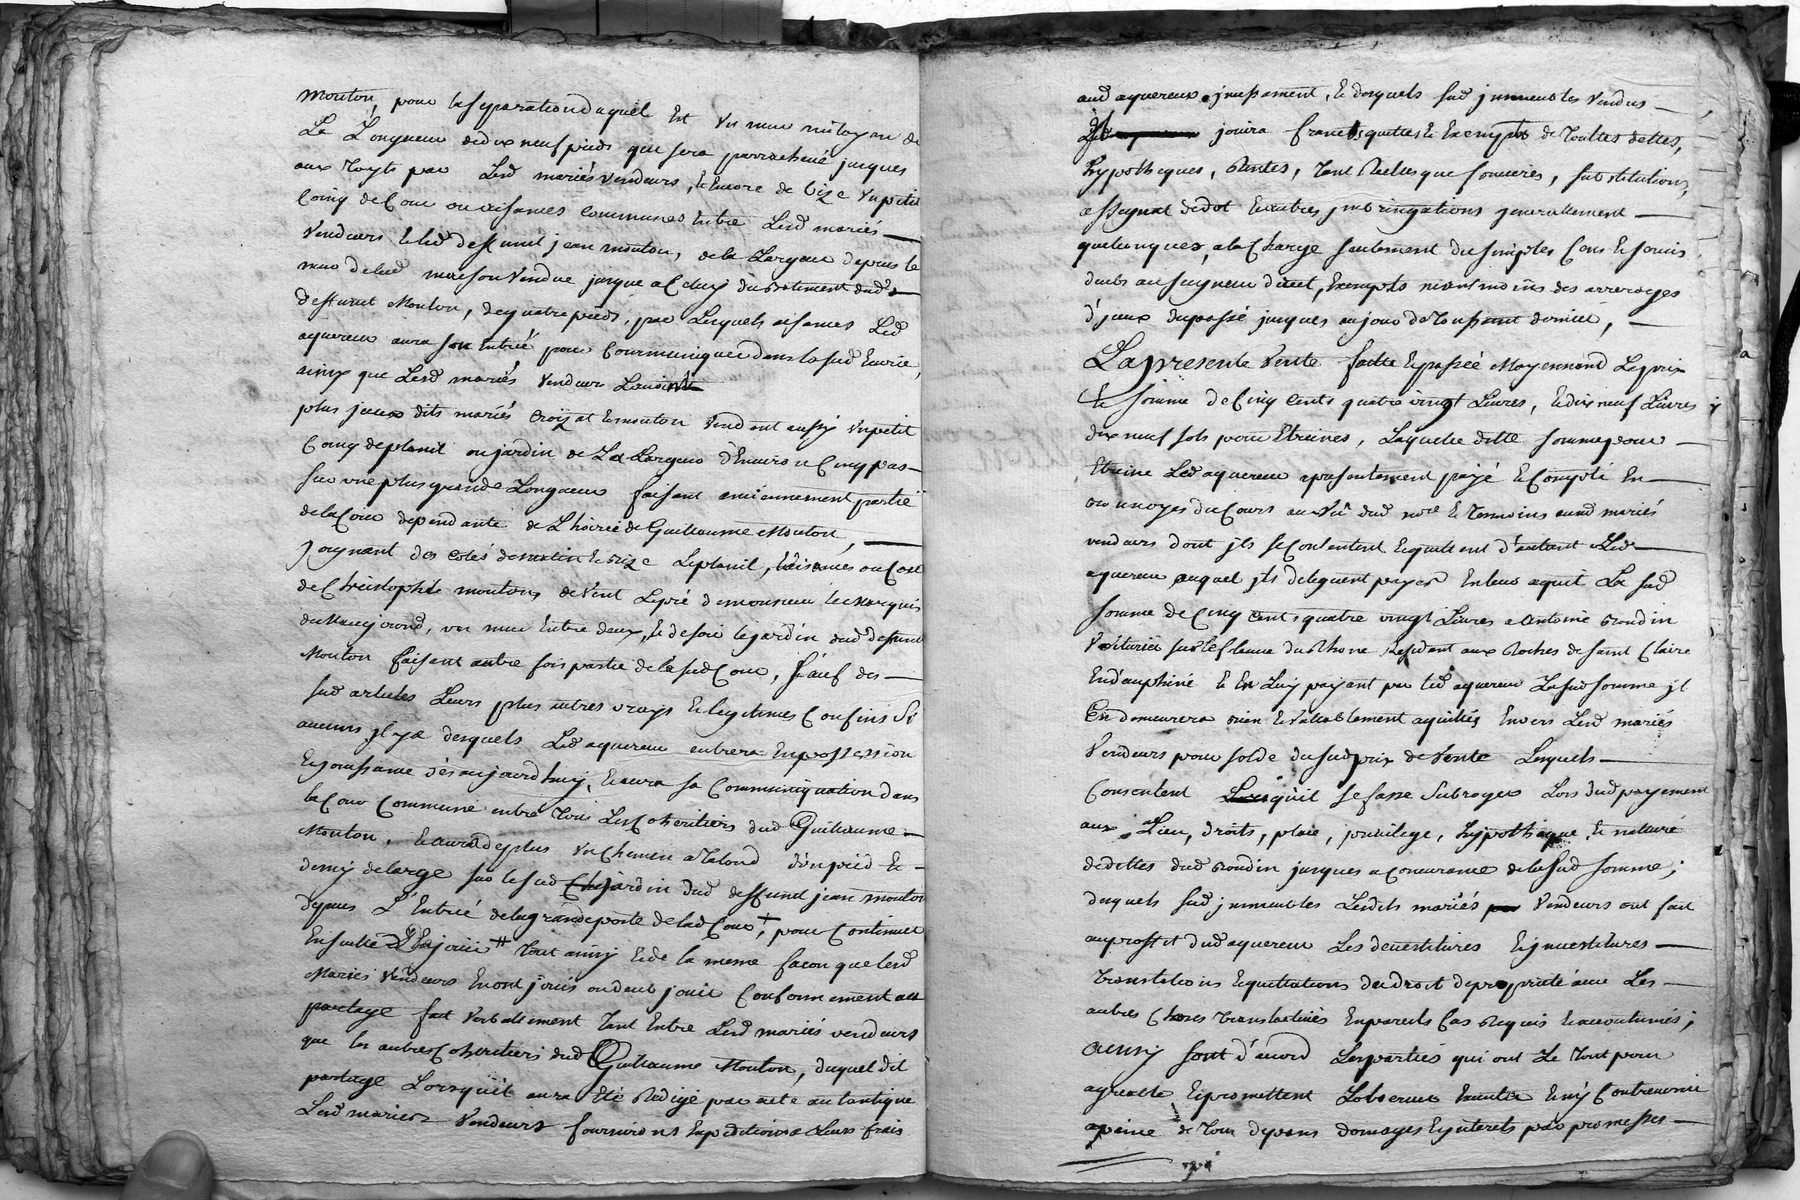 mouton, pour la separation daquel Est un mur mitoyen de
La Longueur dedix neuf pieds que sera parrachevé jusques
aux toyts par Lesd mariés vendeurs, & Encore de bize un petit
Coing de Cour ou aisances communes Entre Lesd mariés
vendeurs & led deffunt jean mouton, de la Largeur depuis le
mur de lad maison vendue jusque a Celuy du batiment dud
deffunt Mouton, de quatre pieds, par Lesquels aisances Led
aquereur aura son Entrée pour Communiquer dans la sud Ecurie,
ainsy que Lesd mariés vendeurs
plus jceux dits mariés Croizat & mouton vendent aussy un petit
Coing de plassil ou jardin de La Largeur d'Environ Cinq pas
sur une plus grande Longueur faisant anciennement partie
de la Cour dependante de L'hoirie de Guillaume Mouton,
Joignant des cotés de matin & bize Le plassil, & aisances ou Cour
de Christophle mouton, de vent Le pré de monsieur le Marquis
de Maugiron, un mur Entre deux, & de soir le jardin dud deffunt
Mouton faisant autre fois partie de la sud Cour, sauf des
sud articles Leurs plus autres vrays & legitimes Confins Si
aucuns jl y a desquels Led aquereur entrera En possession
& jouissance dès aujourdhuy, & aura sa Communiquation dans
la Cour Commune entre tous Les Coheritiers dud Guillaume
Mouton, & aura de plus un Chemin a talond d'un pied &
demy de large sur le sud jardin dud deffunt jean mouton
depuis L'Entrée de la grande porte de lad Cour + pour Continuer
Ensuitte # tout ainsy & de la meme facon que lesd
Mariés vendeurs En ont joüis ou deub joüir Conformement au
partage fait verballement tant Entre Lesd mariés vendeurs
que les autres Coheritiers dud Guillaume Mouton, duquel dit
partage Lorsquil aura Eté Redigé par acte autantique
Lesd mariés vendeurs fourniront Expedition a Leurs frais
aud aquereur, & desquels sud jmmeubles vendus
jouira francs quittes & Exempts de touttes dettes,
hypotheques, Rentes, tant Reelles que foncieres, substitutions,
assignat de dot & autres generallement
quelconques, a la Charge seulement du simples Cens & servis
deubs au seigneur direct, Exempts neantmoins des arrerages
d'jceux du passé jusques au jour de toussaint dernier,
La presente vente faitte & passée Moyennand Le prix
& somme de Cinq Cents quatre vingt Livres, & dix neuf Livres
dix neuf sols pour Etreines, Laquelle ditte somme pour
Etreine Led aquereur a presentement payé & Compté En
du Cours au vû dud nore & temoins auxd mariés
vendeurs dont jls se Contentent & quittent d'autant Led
aquereur auquel jls deleguent payer En leur aquit La sud
somme de Cinq cents quatre vingt Livres a Antoine Bondin
Voiturier sur le fleuve du Rhone Residant aux Roches de saint Claire
En dauphiné & En Luy payant par led aquereur La sud somme jl
En demeurera bien & vallablement aquitté Envers Lesd mariés
vendeurs pour solde du sud prix de vente Lesquels
Consentent quil se fasse subroger Lors dud payement
aux Lieu, droits, place, privilege, hypotheque & nature
de dettes dud Bondin jusques a Concurance de la sud somme;
desquels sud jmmeubles Lesdits mariés vendeurs ont fait
au proffit dud aquereur Les devestitures & jnvestitures
translations & quittations du droit de proprieté avec Les
autres Clauses translatives En pareils Cas Requis & accoutumés;
ainsy sont d'acord Les parties qui ont Le tout pour
agreable & promettent L'observer & ny Contrevenir
a peine de tous depens domages & jnterets par promesses